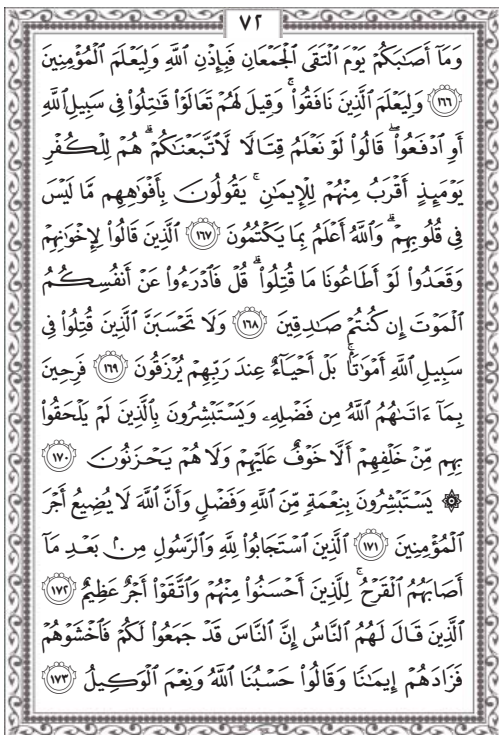 ٧٢
وَمَآ أَصَـٰبَكُمْ يَوْمَ ٱلْتَقَى ٱلْجَمْعَانِ فَبِإِذْنِ ٱللَّهِ وَلِيَعْلَمَ ٱلْمُؤْمِنِينَ
١٦٦ وَلِيَعْلَمَ ٱلَّذِينَ نَافَقُوا۟ ۚ وَقِيلَ لَهُمْ تَعَالَوْا۟ قَـٰتِلُوا۟ فِى سَبِيلِ ٱللَّهِ
أَوِ ٱدْفَعُوا۟ ۖ قَالُوا۟ لَوْ نَعْلَمُ قِتَالًا لَّٱتَّبَعْنَـٰكُمْ ۗ هُمْ لِلْكُفْرِ
يَوْمَئِذٍ أَقْرَبُ مِنْهُمْ لِلْإِيمَـٰنِ ۚ يَقُولُونَ بِأَفْوَٰهِهِم مَّا لَيْسَ
فِى قُلُوبِهِمْ ۗ وَٱللَّهُ أَعْلَمُ بِمَا يَكْتُمُونَ ١٦٧ ٱلَّذِينَ قَالُوا۟ لِإِخْوَٰنِهِمْ
وَقَعَدُوا۟ لَوْ أَطَاعُونَا مَا قُتِلُوا۟ ۗ قُلْ فَٱدْرَءُوا۟ عَنْ أَنفُسِكُمُ
ٱلْمَوْتَ إِن كُنتُمْ صَـٰدِقِينَ ١٦٨ وَلَا تَحْسَبَنَّ ٱلَّذِينَ قُتِلُوا۟ فِى
سَبِيلِ ٱللَّهِ أَمْوَٰتًۢا ۚ بَلْ أَحْيَآءٌ عِندَ رَبِّهِمْ يُرْزَقُونَ ١٦٩ فَرِحِينَ
بِمَآ ءَاتَىٰهُمُ ٱللَّهُ مِن فَضْلِهِۦ وَيَسْتَبْشِرُونَ بِٱلَّذِينَ لَمْ يَلْحَقُوا۟
بِهِم مِّنْ خَلْفِهِمْ أَلَّا خَوْفٌ عَلَيْهِمْ وَلَا هُمْ يَحْزَنُونَ ١٧٠
۞ يَسْتَبْشِرُونَ بِنِعْمَةٍ مِّنَ ٱللَّهِ وَفَضْلٍ وَأَنَّ ٱللَّهَ لَا يُضِيعُ أَجْرَ
ٱلْمُؤْمِنِينَ ١٧١ ٱلَّذِينَ ٱسْتَجَابُوا۟ لِلَّهِ وَٱلرَّسُولِ مِنۢ بَعْدِ مَآ
أَصَابَهُمُ ٱلْقَرْحُ ۚ لِلَّذِينَ أَحْسَنُوا۟ مِنْهُمْ وَٱتَّقَوْا۟ أَجْرٌ عَظِيمٌ ١٧٢
ٱلَّذِينَ قَالَ لَهُمُ ٱلنَّاسُ إِنَّ ٱلنَّاسَ قَدْ جَمَعُوا۟ لَكُمْ فَٱخْشَوْهُمْ
فَزَادَهُمْ إِيمَـٰنًا وَقَالُوا۟ حَسْبُنَا ٱللَّهُ وَنِعْمَ ٱلْوَكِيلُ ١٧٣